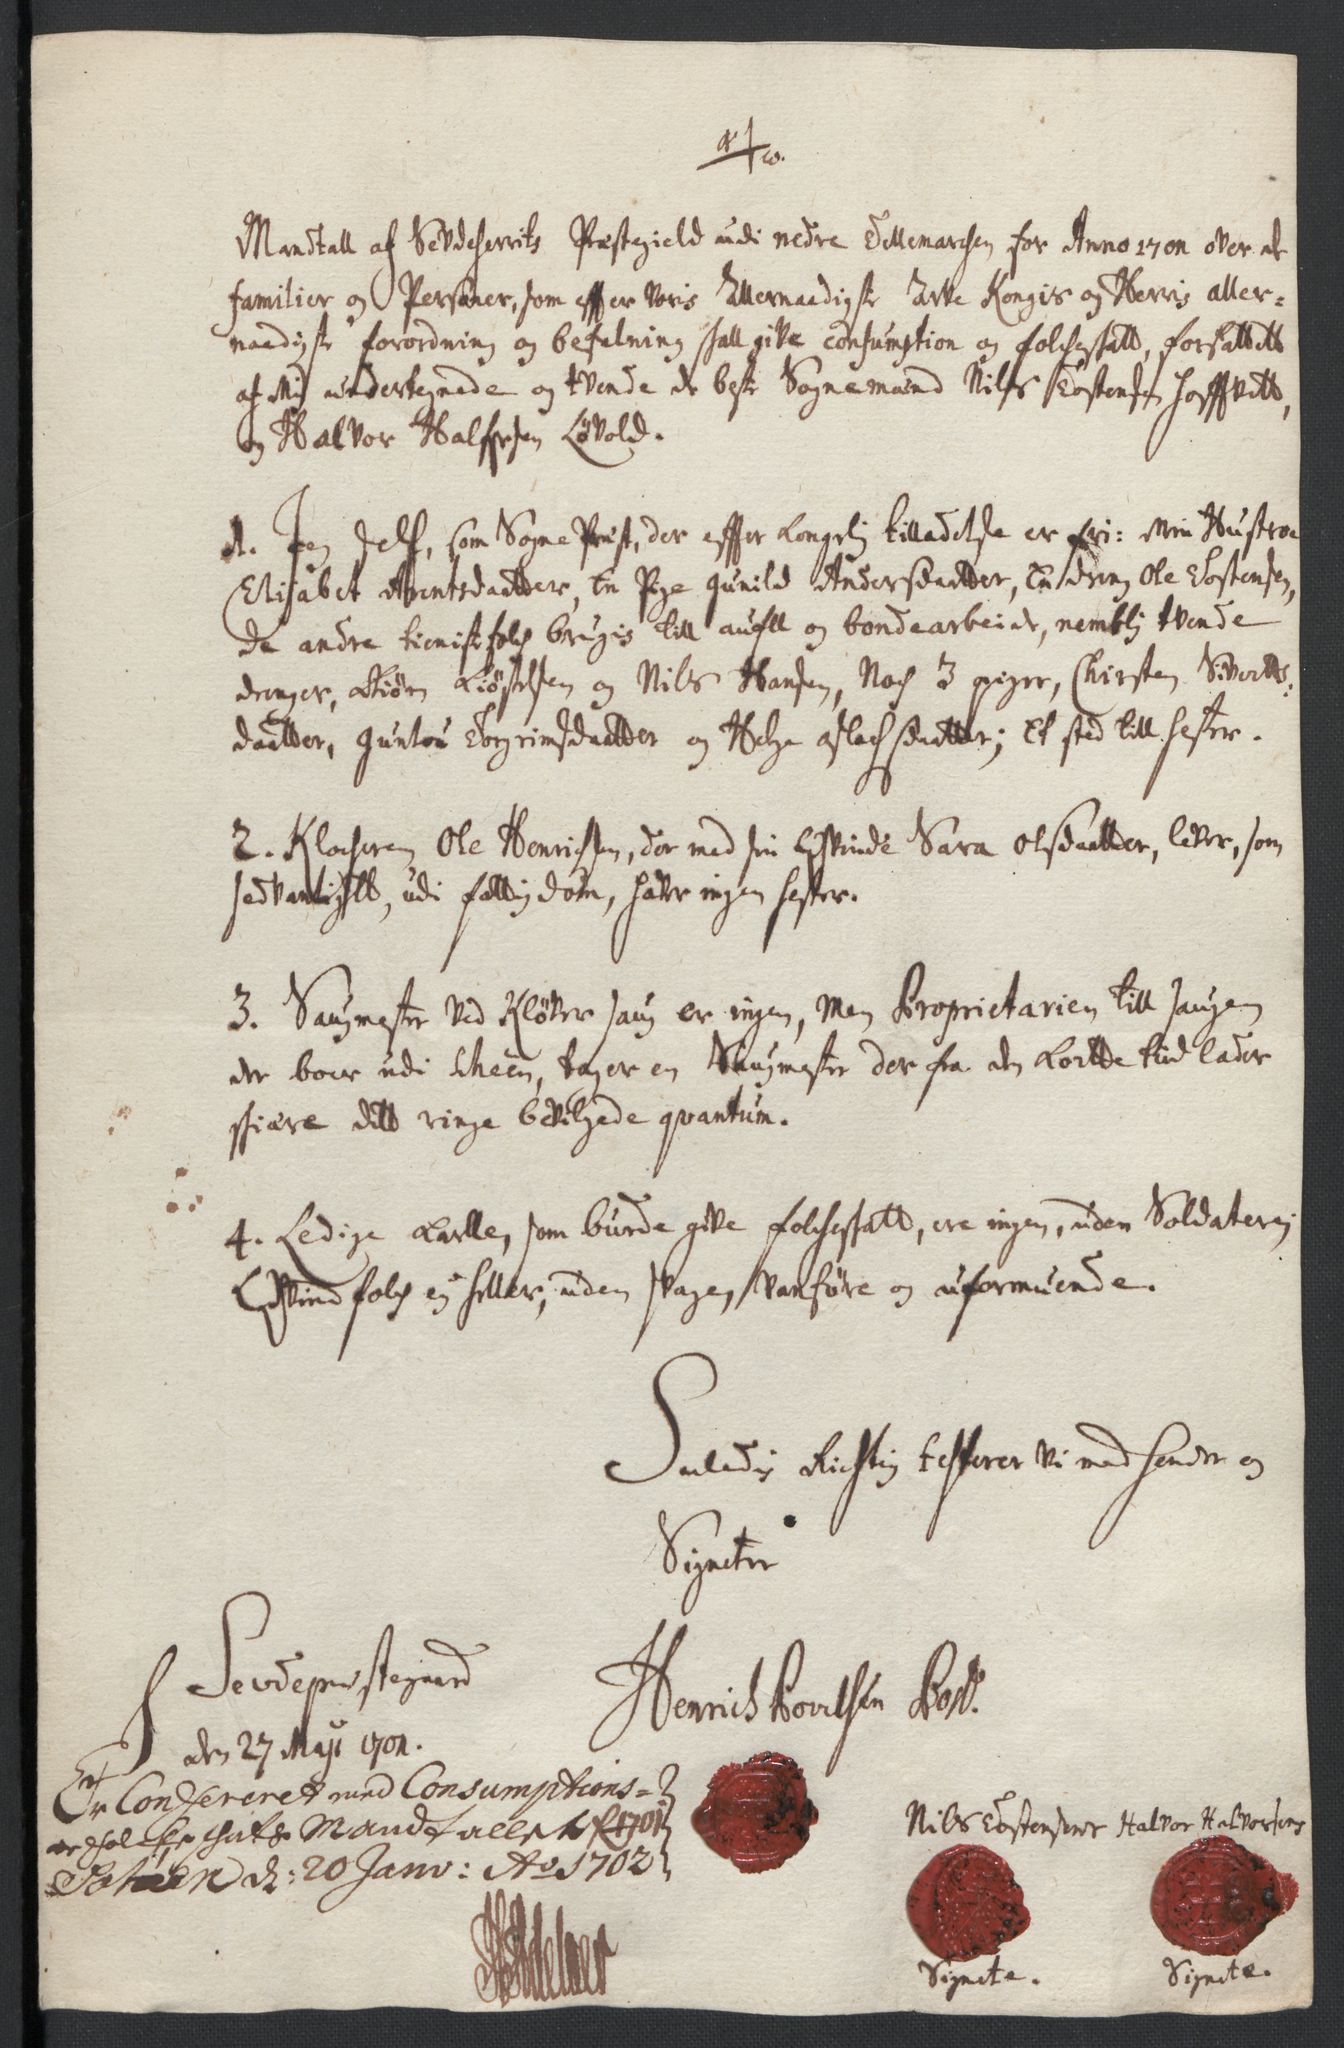 Mandtall af Sevdeherrits Præstegield udi nedre Tellemarchen for Anno 1701 over de
familier og Personer, som effter voris Allernaadigste Arve Kongis og Herris aller-
naadigste forordning og befalning skall give consumption og folcheskatt, forfattett
af mig undertegnede og tvende de beste Sognemænd Nils Tostensen
og Halvor Halforsen Løvold.
1. Jeg self, som Sogne Præst, der effter Kongelig tilladelse er fri: Min Hustroe
Elisabet Arentsdaatter, En Pige gunild Andersdaatter, En dreng Ole Tostensen,
de andre tienistefolch brugis till aufll og bondearbeide, nemblig tvende
drenger, Kiøstelsen og Nils Hansen, Noch 3 piger, Chirsten Siverts-
daatter, guntou Torgrimsdaatter og Helge aslachsdaatter; Et sted till hester.
2. Klocheren Ole Henrichsen, der med sin Qvinde Sara olsdaatter, lever, som
sedvanligtt, udi fattigdom, haver ingen hester.
3. Saugmester ved Kløver saug er ingen, Men Proprietarien till saugen
der boer udi Scheen, tager en Saugmester der fra den Kortte tiid lader
skiære ditt ringe bevilgede qvantum.
4. Ledige Karlle, som burde give folcheskatt, ere ingen, uden Soldater ej
Qvindfolch ej heller, uden svage, vanføre og uformuende.
Saaledis Richtig testerer vi med hender og
Signeter
Sevdepræstegaard
den 27 Maji 1701.
Henrich Povelsen
Er Confereret med Consumptions-
og folcheskats Mandtallet for 1701
Scheen d: 20 Janv: Ao 1702
Nils Tostensens Halvor Halvorsens
Signete. Signete.